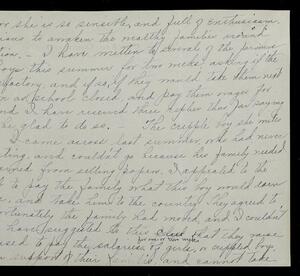 for she is so sensible, and full of enthusiasm.
to awaken the wealthy families around
I have written to several of the
boys this summer for two weeks asking if the
satisfactory, and if so, if they would take them next
school closed, and pay them wages for
and I have received three replies thus far saying
be glad to do so. — The cripple boy she
I came across last summer, who had never
and couldn't go because his family needed
earned from selling papers. I appealed to the
to pay the family what this boy would earn
and take him to the country. They agreed to,
unfortunately the family had moved, and I couldn't
have suggested to this Club that they raise
for two or three weeks
used to pay the salaries of girls, or crippled boys,
support of their families, and cannot take